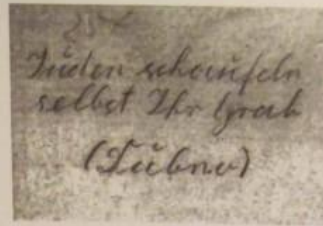 Juden schaufeln
selbst Ihr Grab
(Dubno)